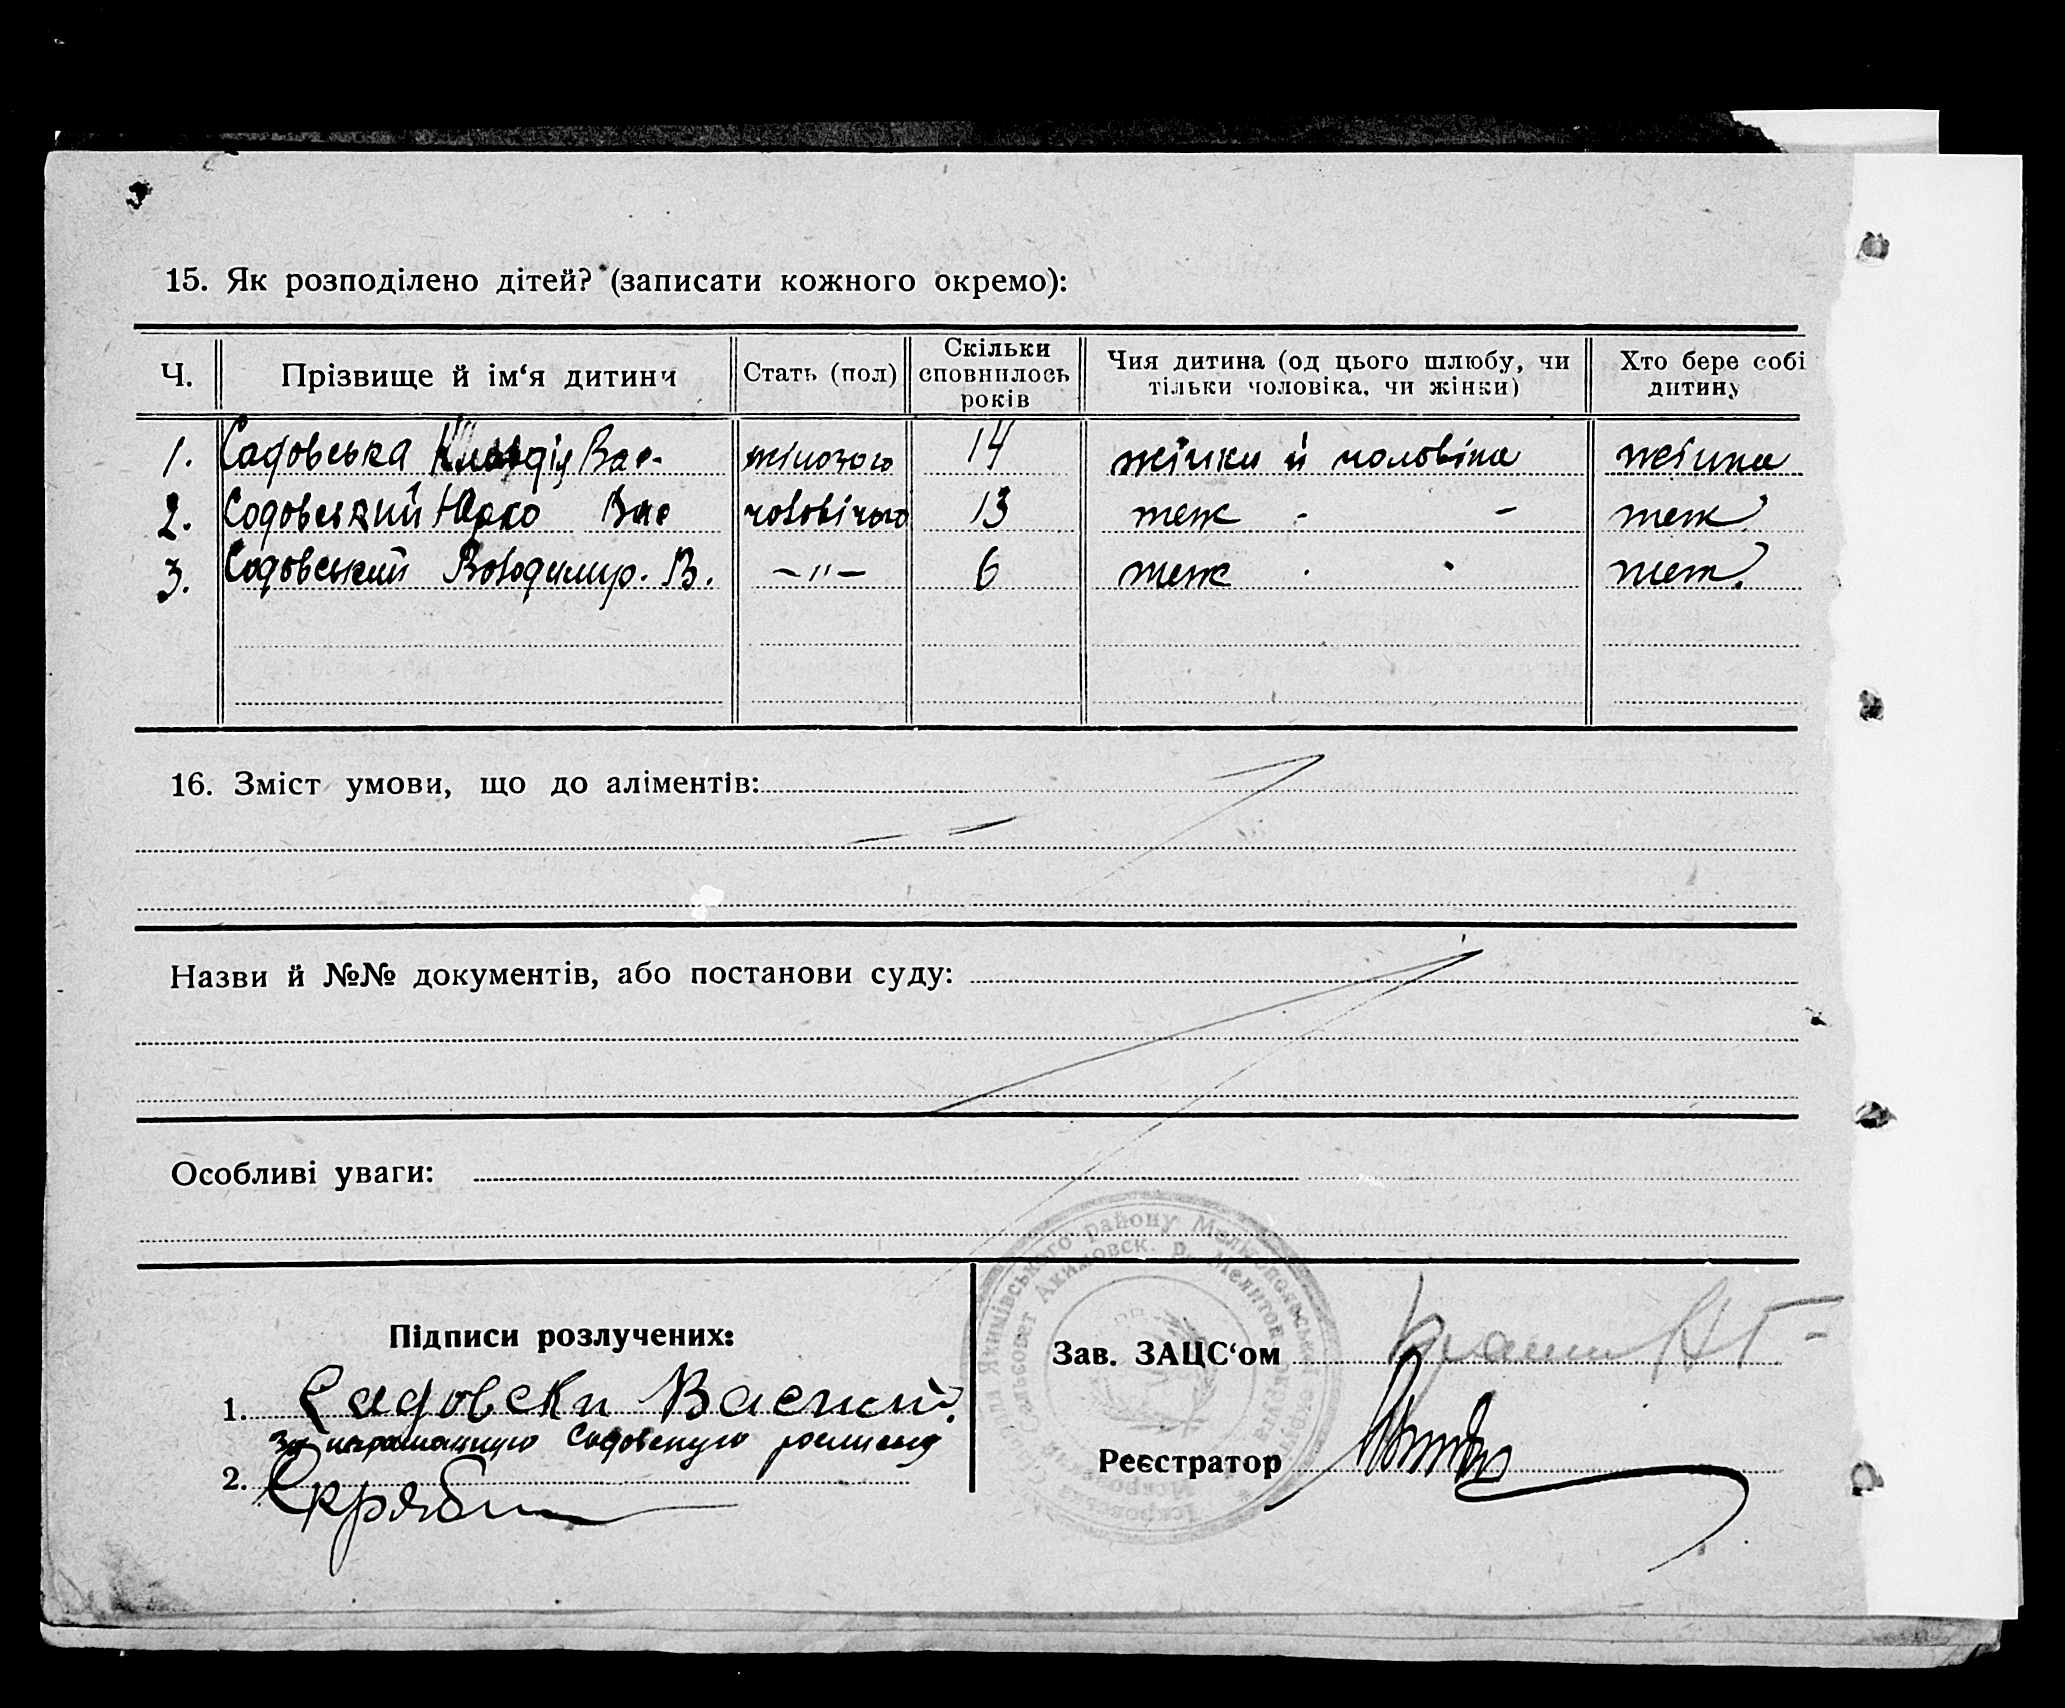 15. Як розподілено дітей? (записати кожного окремо):
Ч. Прізвище й ім‘я дитини Стать (пол) Скільки сповнилось років Чия дитина (од цього шлюбу, чи тільки чоловіка, чи жінки) Хто бере собі дитину
1. Садовська Клавдія Вас. жіночого 14 жінки й чоловіка жінка
2. Содовський Юрко Вас чоловічого 13 теж - - теж
3. Содовський Володимир. В. —〃— 6 теж . . теж.
16. Зміст умови, що до аліментів:
Назви й №№ документів, або постанови суду:
Особливі уваги:
Підписи розлучених:
1. Садовски Василий.
За неграмотную Садовскую
2.
Зав. ЗАЦС‘ом
Реєстратор
Якимівського району Мелітопольської округи
Акимовск. р. Мелитов. округа